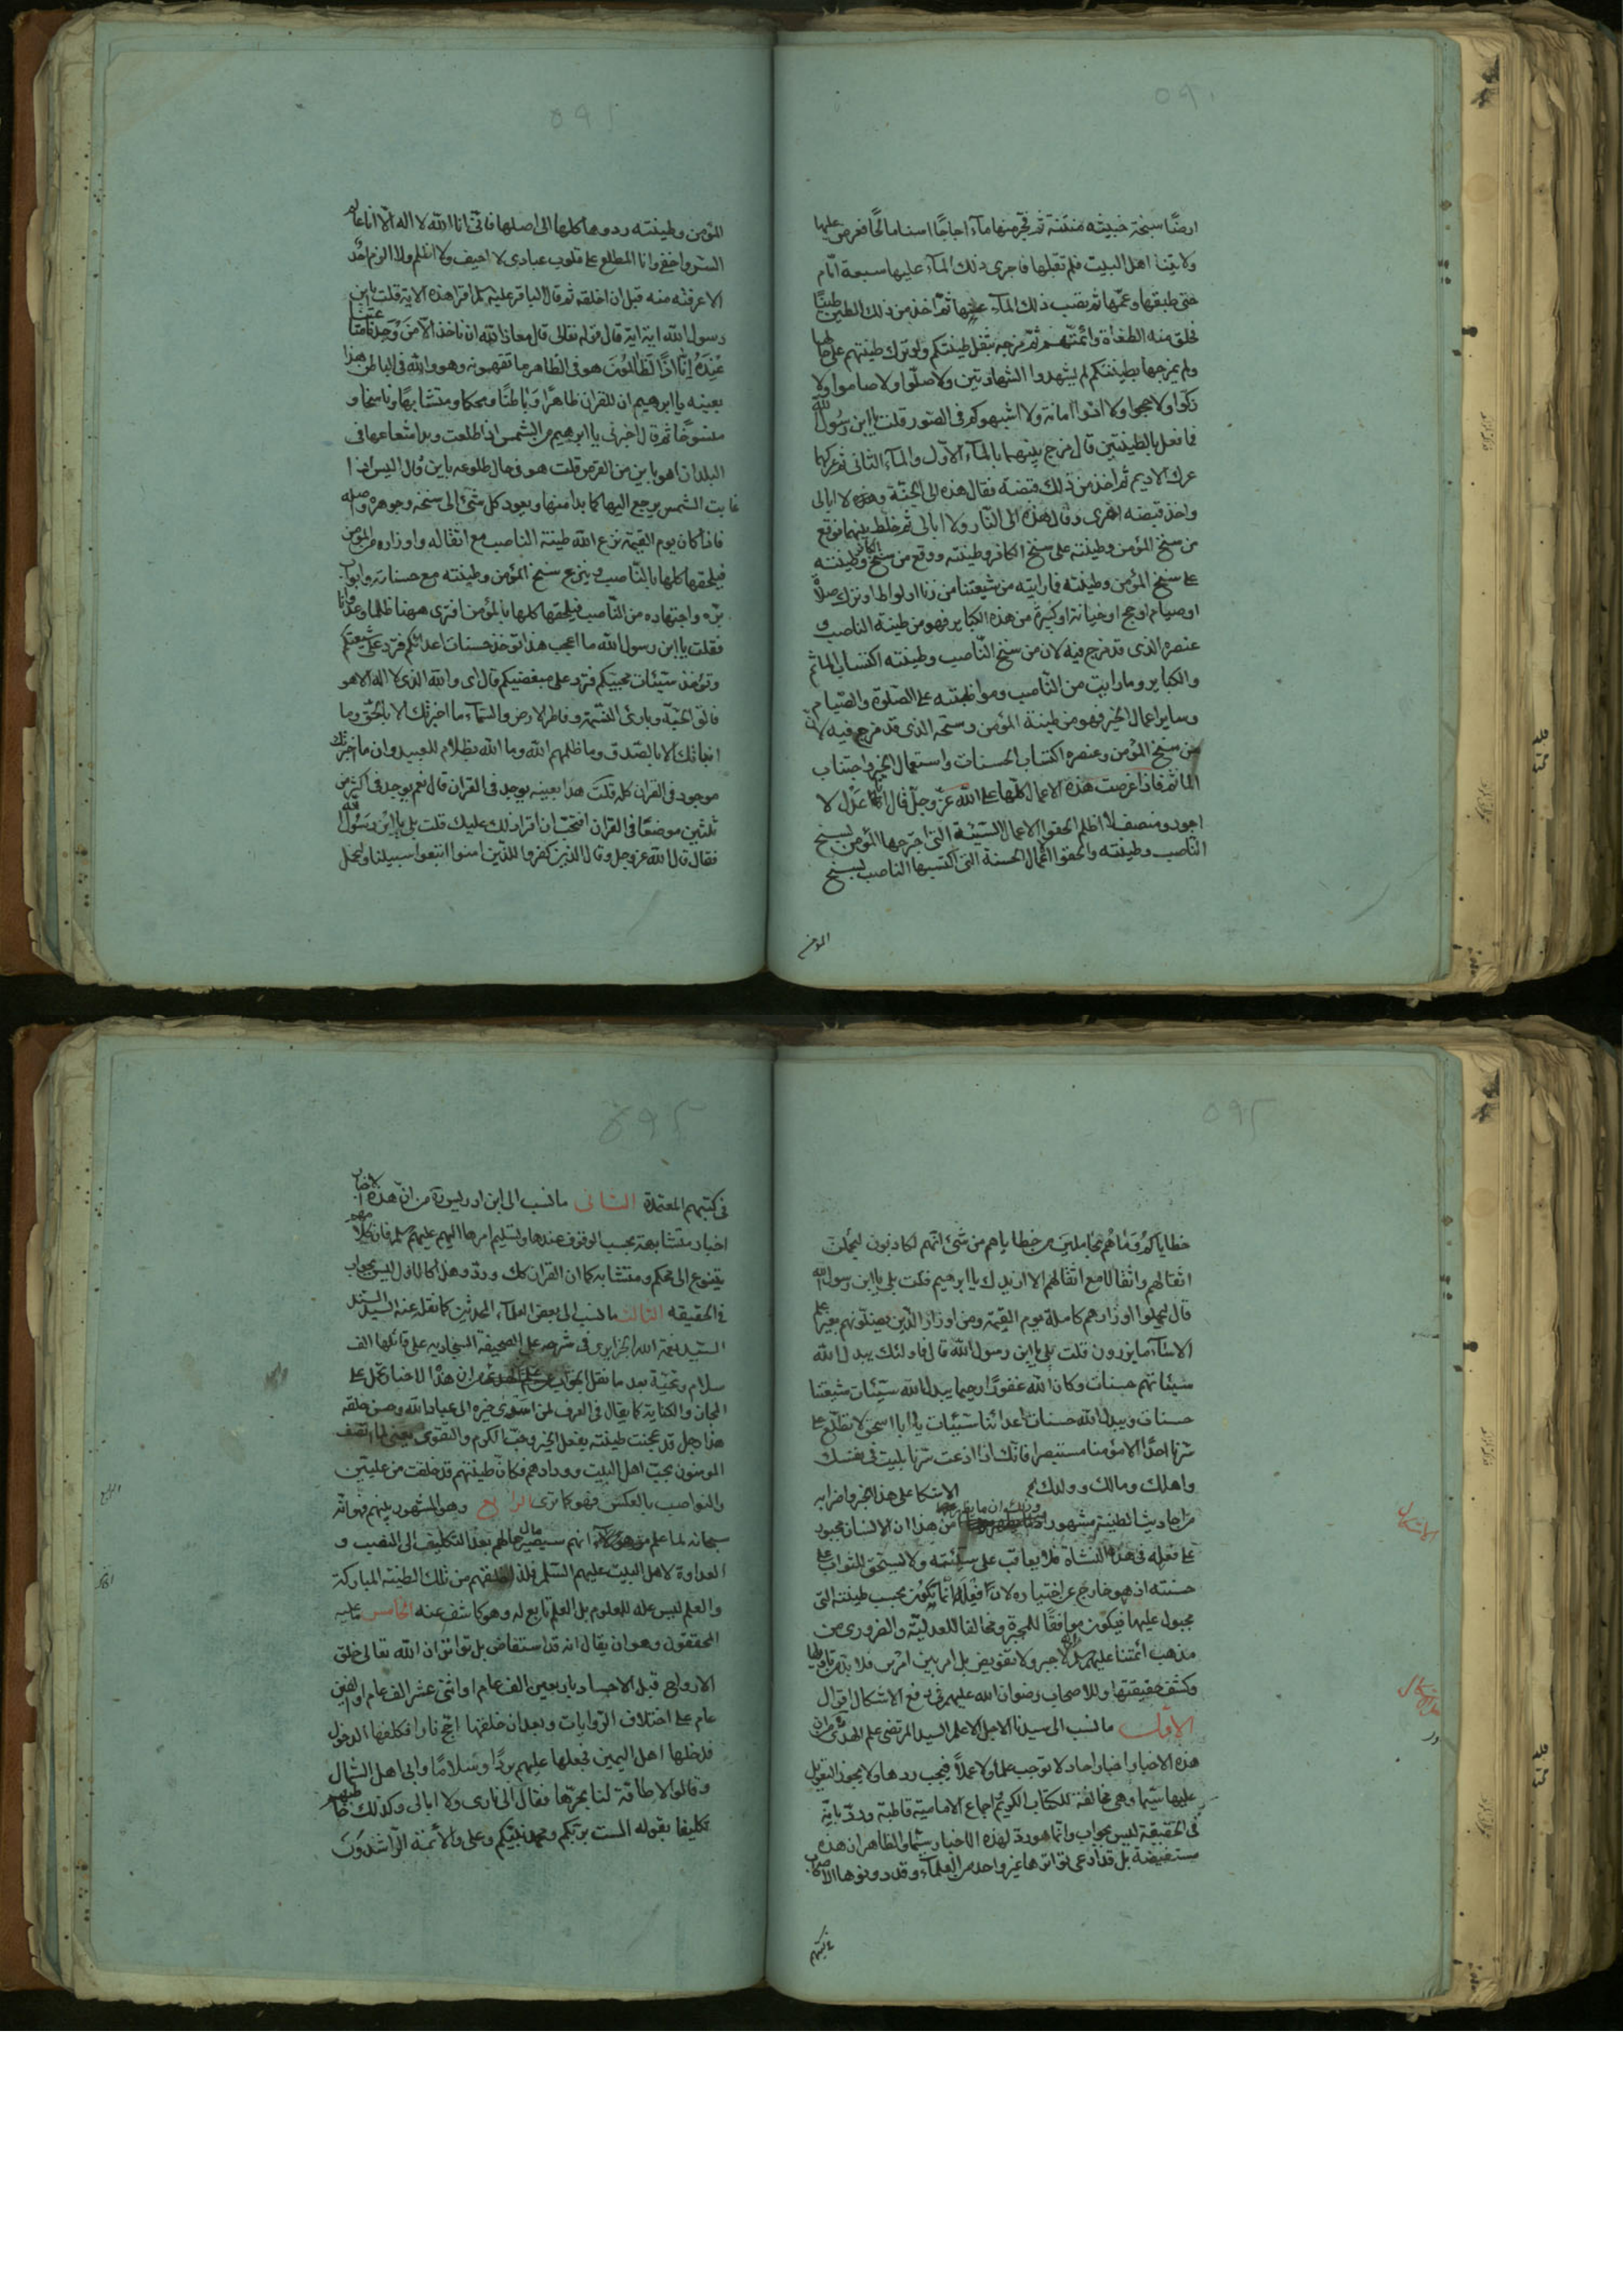 ارضًا سبخة خبيثه منتنة ثم فجر منها ماء اجاجًا اسنا مالحًا فعرض عليها
ولايتنا اهل البيت فلم تقبلها فاجرى ذلك الماء عليها سبعة ايام
حتى طبقها وعمّها ثم نضب ذلك الماء عنها ثم اخذ من ذلك الطين طينًا
فخلق منه الطغاة وائمتهم ثم مزجه بثفل طينتكم ولو ترك طينتهم على حالها
ولم يمزجها بطينتكم لم يشهدوا الشهادتين ولا صلّوا ولا صاموا ولا
زكوا ولا حجوا ولا ادّوا امانة ولا اشبهوكم فى الصور قلت يا ابن رسول الله
فما فعل بالطينتين قال مزج بينهما بالماء الاول والماء الثانى ثم عركها
عرك الاديم ثم اخذ من ذلك قبضة فقال هذه الى الجنة ولا ابالى
واخذ قبضه اخرى وقال هذه الى النار ولا ابالى ثم خلط بينهما فوقع
من سنخ المؤمن وطينته على سنخ الكافر وطينته ووقع من سنخ الكافر وطينته
على سنخ المؤمن وطينته فما رايته من شيعتنا من زنا او لواط او ترك صلاة
او صيام او حج او خيانة او كبيرة من هذه الكباير فهو من طينة الناصب و
عنصره الذى قد مزج فيه لان من سنخ الناصب وطينته اكتساب المآثم
والكباير وما رايت من الناصب ومواظبته على الصلوة والصيام
وساير اعمال الخير فهو من طينة المؤمن وسنخه الذى قد مزج فيه لان
من سنخ المؤمن وعنصره اكتساب الحسنات واستعمال الخير واجتناب
المآثم فاذا عرضت هذه الاعمال كلها على الله عز وجل قال انا عدل لا
اجور ومنصف لا اظلم الحقوا الاعمال السيئة التى اجترحها المؤمن بسنخ
الناصب وطينته والحقوا الاعمال الحسنة التى اكتسبها الناصب بسنخ
المؤمن
المؤمن وطينته ردوها كلها الى اصلها فانى انا الله لا اله الا انا عالم
السر واخفى وانا المطلع على قلوب عبادى لا احيف ولا اظلم ولا الزم احدًا
الا عرفته منه قبل ان اخلقه ثم قال الباقر عليه اقرا هذه الاية قلت يا ابن
رسول الله اية اية قال قوله تعالى قال معاذ الله ان ناخذ الا من وجدنا متاعنا
عنده انا اذًا لظالمون هو فى الظاهر ما تفهمونه وهو والله فى الباطن هذا
بعينه يا ابرهيم ان للقران ظاهرًا وباطنًا ومحكما ومتشابهًا وناسخا و
منسوخًا ثم قال اخبرنى يا ابرهيم عن الشمس اذا طلعت وبدا شعاعها فى
البلدان اهو باين من القرص قلت هو فى حال طلوعه باين قال اليس اذا
غابت الشمس يرجع اليها كما بدا منها ويعود كل شئ الى سنخه وجوهره واصله
فاذا كان يوم القيمة نزع الله طينة الناصب مع اثقاله واوزاره من المؤمن
فيلحقها كلها بالناصب وينزع سنخ المؤمن وطينته مع حسناته وابواب
برّه واجتهاده من الناصب فيلحقها كلها بالمؤمن افترى ههنا ظلما وعدوانا
فقلت يا ابن رسول الله ما اعجب هذا تؤخذ حسنات اعدائكم فترد على شيعتكم
وتؤخذ سيئات محبيكم فترد على مبغضيكم قال اى والله الذى لا اله الا هو
فالق الحبة وبارئ النسمة وفاطر الارض والسماء ما اخبرتك الا بالحق وما
انباتك الا بالصدق وما ظلمهم الله وما الله بظلام للعبيد وان ما اخبرتك
موجود فى القران كله قلت هذا بعينه يوجد فى القران قال نعم يوجد فى اكثر من
ثلثين موضعًا فى القران اتحب ان اقرا ذلك عليك قلت بلى يا ابن رسول الله
فقال قال الله عز وجل وقال الذين كفروا للذين امنوا اتبعوا سبيلنا ولنحمل
خطاياكم وما هم بحاملين من خطاياهم من شئ انهم لكاذبون ليحملن
اثقالهم واثقالا مع اثقالهم الا ازيدك يا ابرهيم قلت بلى يا ابن رسول الله
قال ليحملوا اوزارهم كاملة يوم القيمة ومن اوزار الذين يضلونهم بغير علم
الا ساء ما يزرون قلت بلى يا ابن رسول الله قال فاولئك يبدل الله
سيئاتهم حسنات وكان الله غفورًا رحيما يبدل الله سيئات شيعتنا
حسنات ويبدل الله حسنات اعدائنا سيئات يا ابا اسحق لا تطلع على
سرنا احدًا الا مؤمنا مستبصرا فانك اذا اذعت سرنا بليت فى نفسك
واهلك ومالك وولدك الاشكال على هذا الخبر واضرابه
من احاديث الطينة مشهور من هذا ان الانسان مجبور
على فعله فى هذه النشاة فلا يعاقب على سيئته ولا يستحق للثواب على
حسنته اذ هو خارج عن اختياره لان افعاله انما تكون بحسب طينته التى
مجبول عليها فيكون موافقًا للمجبرة ومخالفا للعدلية والضرورى من
مذهب ائمتنا عليهم لا جبر ولا تفويض بل امر بين امرين فلا بد من تاويلها
وكشف حقيقتها وللاصحاب رضوان الله عليهم فى دفع الاشكال اقوال
الاول ما نسب الى سيدنا الاجل الاعلم السيد المرتضى علم الهدى من ان
هذه الاخبار اخبار احاد لا توجب علما ولا عملًا فيجب ردها ولا يجوز التعويل
عليها سيما وهى مخالفة للكتاب الكريم اجماع الامامية قاطبة وردّ بانه
فى الحقيقة ليس بجواب وانما هو رد لهذه الاخبار سيما والظاهر ان هذه
مستفيضة بل قد ادعى تواترها غير واحد من العلماء وقد دونوها الاصحاب
فى كتبهم
الاشكال
فى كتبهم المعتمدة الثانى ما نسب الى ابن ادريس من ان هذه الاخبار
اخبار متشابهة يجب الوقوف عندها وتسليم امرها اليهم عليهم السلام فان كلامهم
يتنوع الى محكم ومتشابه كما ان القران كك وردّ وهذا كالاول ليس بجواب
فى الحقيقه الثالث ما نسب الى بعض العلماء المحدثين كما نقله عنه السيد السند
السيد نعمة الله الجزايرى فى شرحه على الصحيفة السجادية على قائلها الف
سلام وتحية بعد ما نقل الجواب ان هذا الاخبار تحمل على
المجاز والكناية كما يقال فى العرف لمن اسدى خيره الى عباد الله وحسن خلقه
هذا رجل قد عجنت طينته بفعل الخير وحب الكرم والتقوى يعنى لما اتصف
المومنون بحب اهل البيت وودادهم فكان طينتهم قد خلقت من عليين
والنواصب بالعكس فهو كما ترى الرابع وهو المشهور بينهم فهو انه
سبحانه لما علم من هؤلاء انهم سيصير مال حالهم بعد التكليف الى النصب و
العداوة لاهل البيت عليهم السلام فلذا خلقهم من تلك الطينة المباركة
والعلم ليس علة للمعلوم بل العلم تابع له وهو كاشف عنه الخامس ما عليه
المحققون وهو ان يقال انه قد استفاض بل تواتر ان الله تعالى خلق
الارواح قبل الاجساد باربعين الف عام او اثنى عشر الف عام او الفين
عام على اختلاف الروايات وبعد ان خلقها اجج نارا فكلفها الدخول
فدخلها اهل اليمين فجعلها عليهم بردًا وسلامًا وابى اهل الشمال
وقالوا لا طاقة لنا بحرّها فقال الى نارى ولا ابالى وكذلك خاطبهم
تكليفا بقوله الست بربكم ومحمد نبيكم وعلى والائمة الراشدون